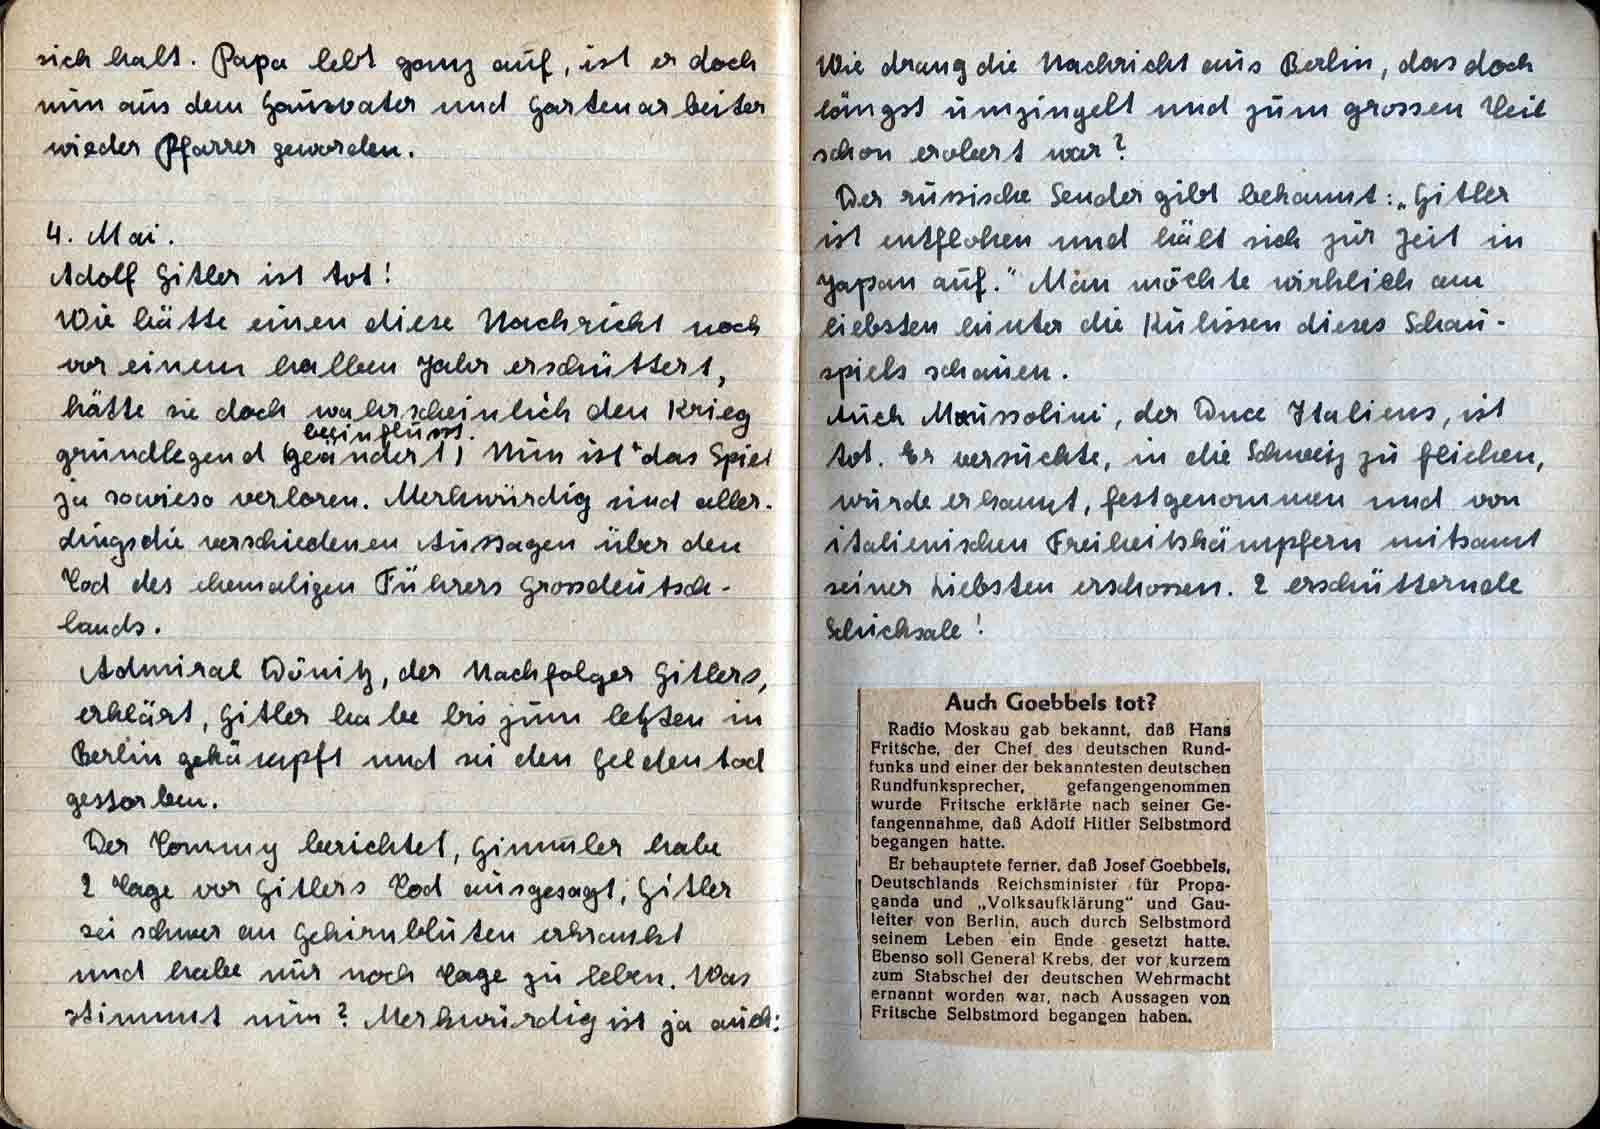 sich halt. Papa lebt ganz auf, ist er doch
nun aus dem Hausvater und Gartenarbeiter
wieder Pfarrer geworden.
4. Mai.
Adolf Hitler ist tot!
Wie hätte einen diese Nachricht noch
vor einem halben Jahr erschüttert,
hätte sie doch wahrscheinlich den Krieg
beeinflusst.
grundlegend geändert! Nun ist das Spiel
ja sowieso verloren. Merkwürdig sind aller-
dings die verschiedenen Aussagen über den
Tod des ehemaligen Führers Grossdeutsch-
lands.
Admiral Dönitz, der Nachfolger Hitlers,
erklärt, Hitler habe bis zum letzten in
Berlin gekämpft und sei den Heldentod
gestorben.
Der Tommy berichtet, Himmler habe
2 Tage vor Hitlers Tod ausgesagt, Hitler
sei schwer an Gehirnbluten erkrankt
und habe nur noch Tage zu leben. Was
stimmt nun? Merkwürdig ist ja auch:
Wie drang die Nachricht aus Berlin, das doch
längst umzingelt und zum grossen Teil
schon erobert war?
Der russische Sender gibt bekannt: „Hitler
ist entflohen und hält sich zur Zeit in
Japan auf." Man möchte wirklich am
liebsten hinter die Kulissen dieses Schau-
spiels schauen.
Auch Mussolini, der Duce Italiens, ist
tot. Er versuchte, in die Schweiz zu fliehen,
wurde erkannt, festgenommen und von
italienischen Freiheitskämpfern mitsamt
seiner Liebsten erschossen. 2 erschütternde
Schicksale!
Auch Goebbels tot?
Radio Moskau gab bekannt, daß Hans
Fritsche, der Chef des deutschen Rund-
funks und einer der bekanntesten deutschen
Rundfunksprecher, gefangengenommen
wurde Fritsche erklärte nach seiner Ge-
fangennahme, daß Adolf Hitler Selbstmord
begangen hatte.
Er behauptete ferner, daß Josef Goebbels,
Deutschlands Reichsminister für Propa-
ganda und „Volksaufklärung" und Gau-
leiter von Berlin, auch durch Selbstmord
seinem Leben ein Ende gesetzt hatte.
Ebenso soll General Krebs, der vor kurzem
zum Stabschef der deutschen Wehrmacht
ernannt worden war, nach Aussagen von
Fritsche Selbstmord begangen haben.